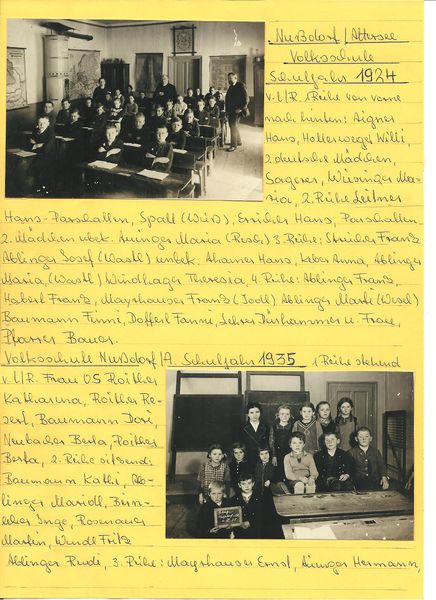 Nußdorf/Attersee
Volksschule
Schuljahr 1924
v. l/R. 1 Reihe von vorne
nach hinten: Aigner
Hans, Hollerweger Willi,
2 deutsche Mädchen,
Sagerer, Wiesinger Ma-
ria, 2. Reihe Leitner
Hans-Parschallen, Spalt (Wirs), Erricher Hans, Parschallen
2. Mädchen unbek. Aminger Maria (Reser) 3. Reihe: Streicher Franz
Ablinger Josef (Wastl) unbek. Ahamer Hans, Leber Anna, Ablinger
Maria, (Wastl) Windhager Theresia, 4. Reihe: Ablinger Franz,
Haberl Franz, Mayrhauser Franz (Jodl) Ablinger Marti (Wesel)
Baumann Finni, Dofferl Fanni, Lehrer Dürhammer u. Frau,
Pfarrer Bauer.
Volksschule Nußdorf/A. Schuljahr 1935 1 Reihe stehend
v. l/R. Frau OS Roither
Katharina, Roither Ro-
sert, Baumann Dori,
Neubacher Berta, Roither
Berta, 2. Reihe sitzend:
Baumann Kathi, Ab-
linger Maridl, Birn-
leher Inge, Rosenauer
Martin, Wendl Fritz
Ablinger Rudi, 3. Reihe: Mayrhauser Ernst, Aminger Hermann,